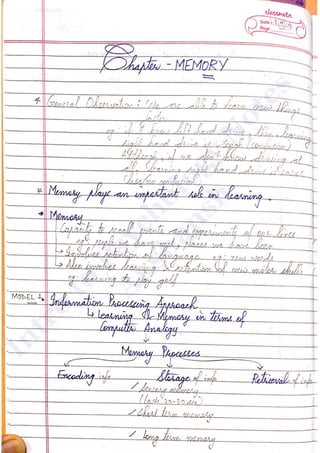 classmate
Date
Page
Chapter - MEMORY
* General Observation : We are able to learn new things
eg: if I know left hand drive, then learning
right hand drive is tough (confusion)
Although, if we don't know driving at
all, learning right hand drive is easier
* Memory plays an important role in learning.
* Memory
Capacity to recall events and experiments of our lives
eg: people we have met, places we have been
↳ Involves retention of language eg: new words
↳ Also involves learning & retention of new motor skills
eg: learning to play golf
MODEL 1. Information Processing Approach
↳ Learning & Memory in terms of
Computer Analogy
↓
Memory Processes
Encoding info Storage of info Retrieval of info
✓ Sensory memory
(lasts 20-30 sec)
✓ Short term memory
✓ Long term memory